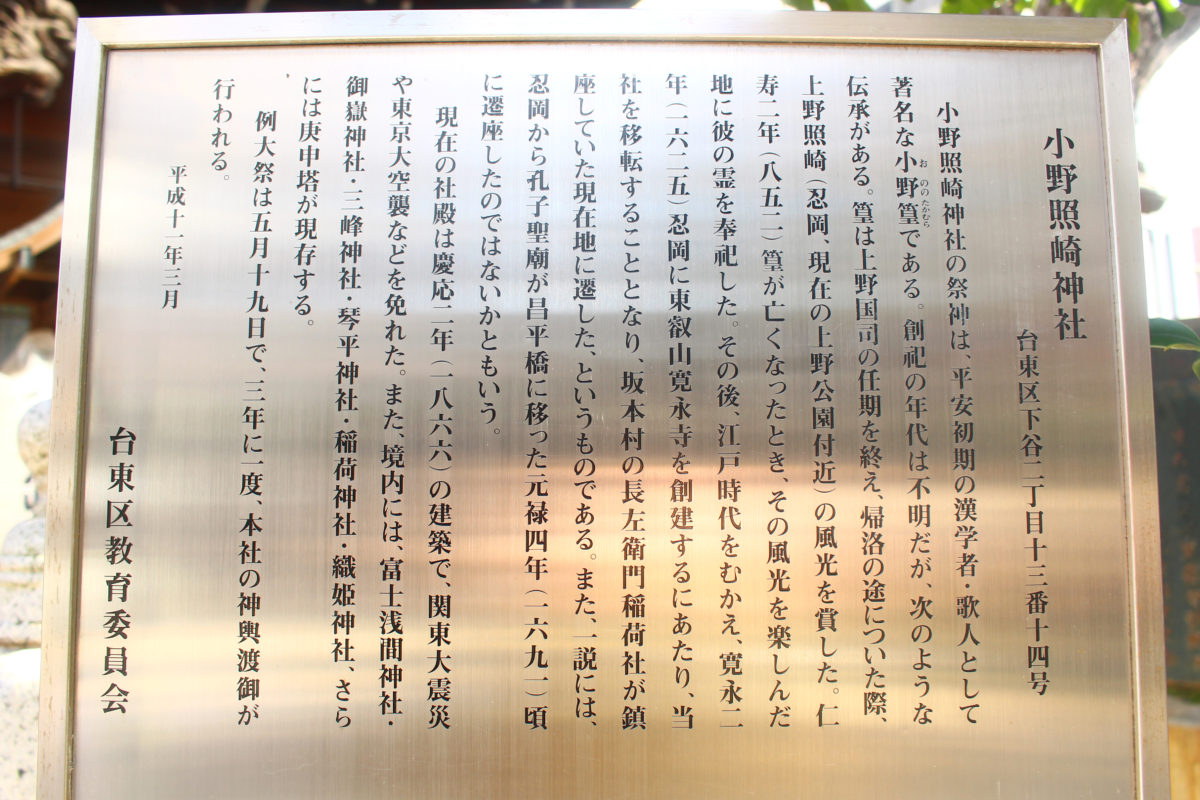 小野照崎神社
台東区下谷二丁目十三番十四号
小野照崎神社の祭神は、平安初期の漢学者・歌人として
著名な小野篁である。創祀の年代は不明だが、次のような
おののたかむら
伝承がある。篁は上野国司の任期を終え、帰洛の途についた際、
上野照崎（忍岡、現在の上野公園付近）の風光を賞した。仁
寿二年（八五二）篁が亡くなったとき、その風光を楽しんだ
地に彼の霊を奉祀した。その後、江戸時代をむかえ、寛永二
年（一六二五）忍岡に東叡山寛永寺を創建するにあたり、当
社を移転することとなり、坂本村の長左衛門稲荷社が鎮
座していた現在地に遷した、というものである。また、一説には、
忍岡から孔子聖廟が昌平橋に移った元禄四年（一六九一）頃
に遷座したのではないかともいう。
現在の社殿は慶応二年（一八六六）の建築で、関東大震災
や東京大空襲などを免れた。また、境内には、富士浅間神社・
御嶽神社・三峰神社・琴平神社・稲荷神社・織姫神社、さら
には庚申塔が現存する。
例大祭は五月十九日で、三年に一度、本社の神輿渡御が
行われる。
平成十一年三月
台東区教育委員会